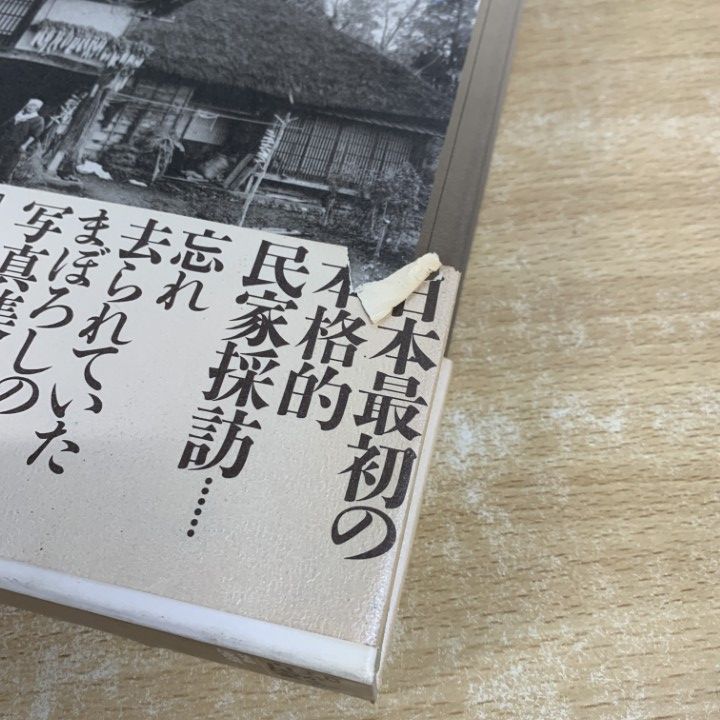 日本最初の
本格的
民家採訪……
忘れ
去られていた
まぼろしの
写真集